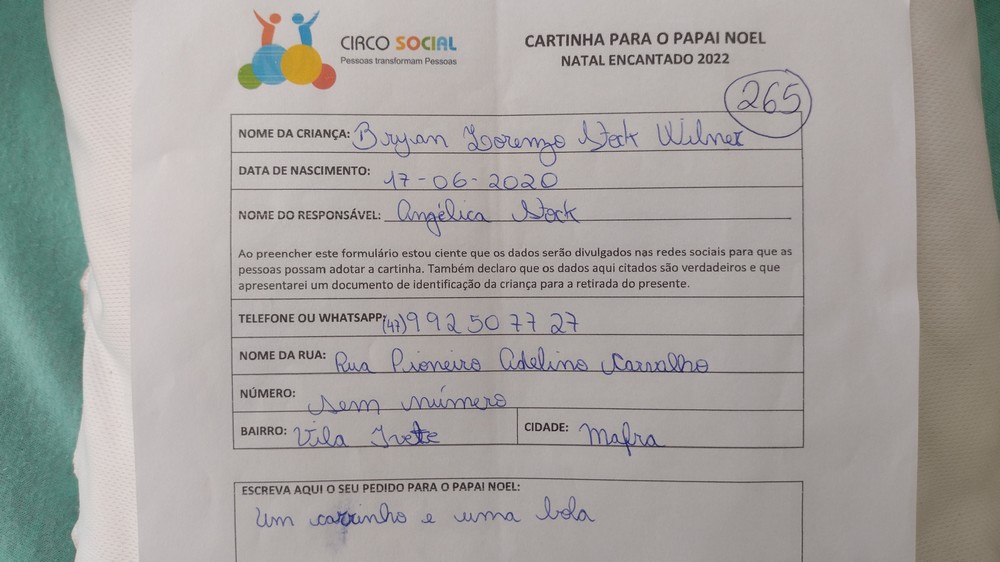 CIRCO SOCIAL
Pessoas transformam Pessoas
CARTINHA PARA O PAPAI NOEL
NATAL ENCANTADO 2022
265
NOME DA CRIANÇA: Bryan Lorenzo Stock Wilner
DATA DE NASCIMENTO: 17-06-2020
NOME DO RESPONSÁVEL: Angélica Stock
Ao preencher este formulário estou ciente que os dados serão divulgados nas redes sociais para que as
pessoas possam adotar a cartinha. Também declaro que os dados aqui citados são verdadeiros e que
apresentarei um documento de identificação da criança para a retirada do presente.
TELEFONE OU WHATSAPP: (47) 992507727
NOME DA RUA: Rua Pioneiro Adelino Carvalho
NÚMERO: Sem número
BAIRRO: Vila Ivete CIDADE: Mafra
ESCREVA AQUI O SEU PEDIDO PARA O PAPAI NOEL:
Um carrinho e uma bola